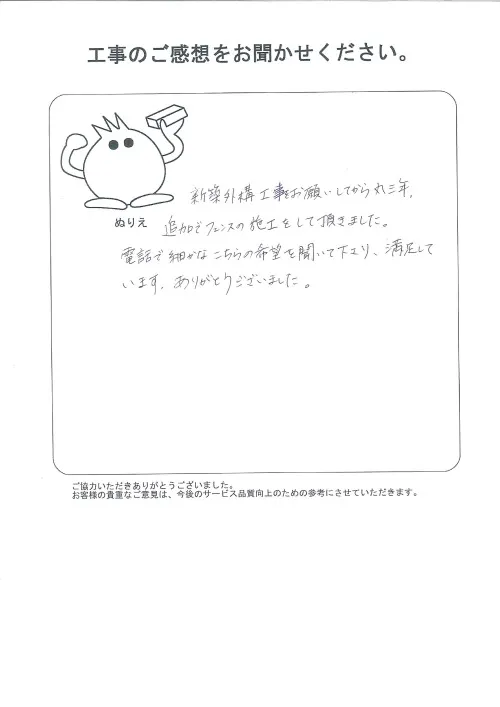 工事のご感想をお聞かせください。
ぬりえ
新築外構工事をお願いしてから丸三年、
追加でフェンスの施工をして頂きました。
電話で細かなこちらの希望を聞いて下さり、満足して
います。ありがとうございました。
ご協力いただきありがとうございました。
お客様の貴重なご意見は、今後のサービス品質向上のための参考にさせていただきます。